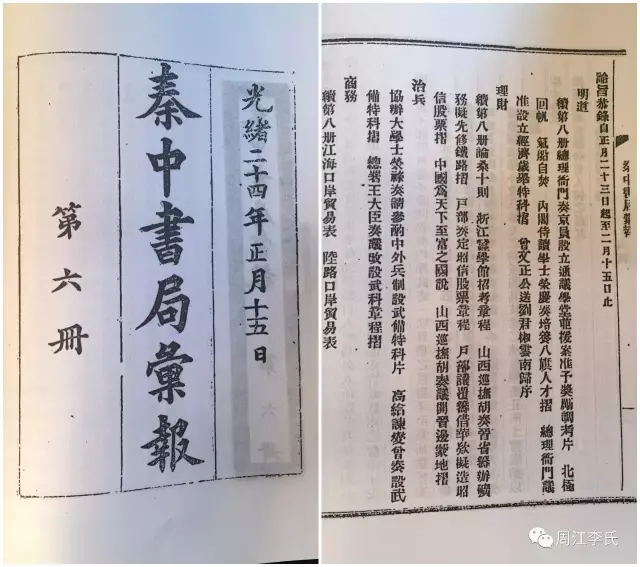 光緒二十四年正月十五日
秦中書局彙報
第六冊
秦中書局彙報
諭旨恭錄自正月二十三日起至二月十五日止
明道
續第八册總理衙門奏京員設立通議學堂並援案准予獎勵調考片 北極
回帆 氣船自焚 內閣侍讀學士榮慶奏培養八旗人才摺 總理衙門議
准設立經濟歲舉特科摺 曾文正公送劉君椒雲南歸序
理財
續第八册論桑十則 浙江蠶學館招考章程 山西巡撫胡奏晉省籌辦礦
務擬先修鐵路摺 戶部奏定昭信股票章程 戶部議覆籌借華欵擬造昭
信股票摺 中國為天下至富之國說 山西巡撫胡奏議開晉邊蒙地摺
治兵
協辦大學士榮祿奏請參酌中外兵制設武備特科片 高給諫燮曾奏設武
備特科摺 總署王大臣奏議改設武科章程摺
商務
續第八册江海口岸貿易表 陸路口岸貿易表
周江李氏